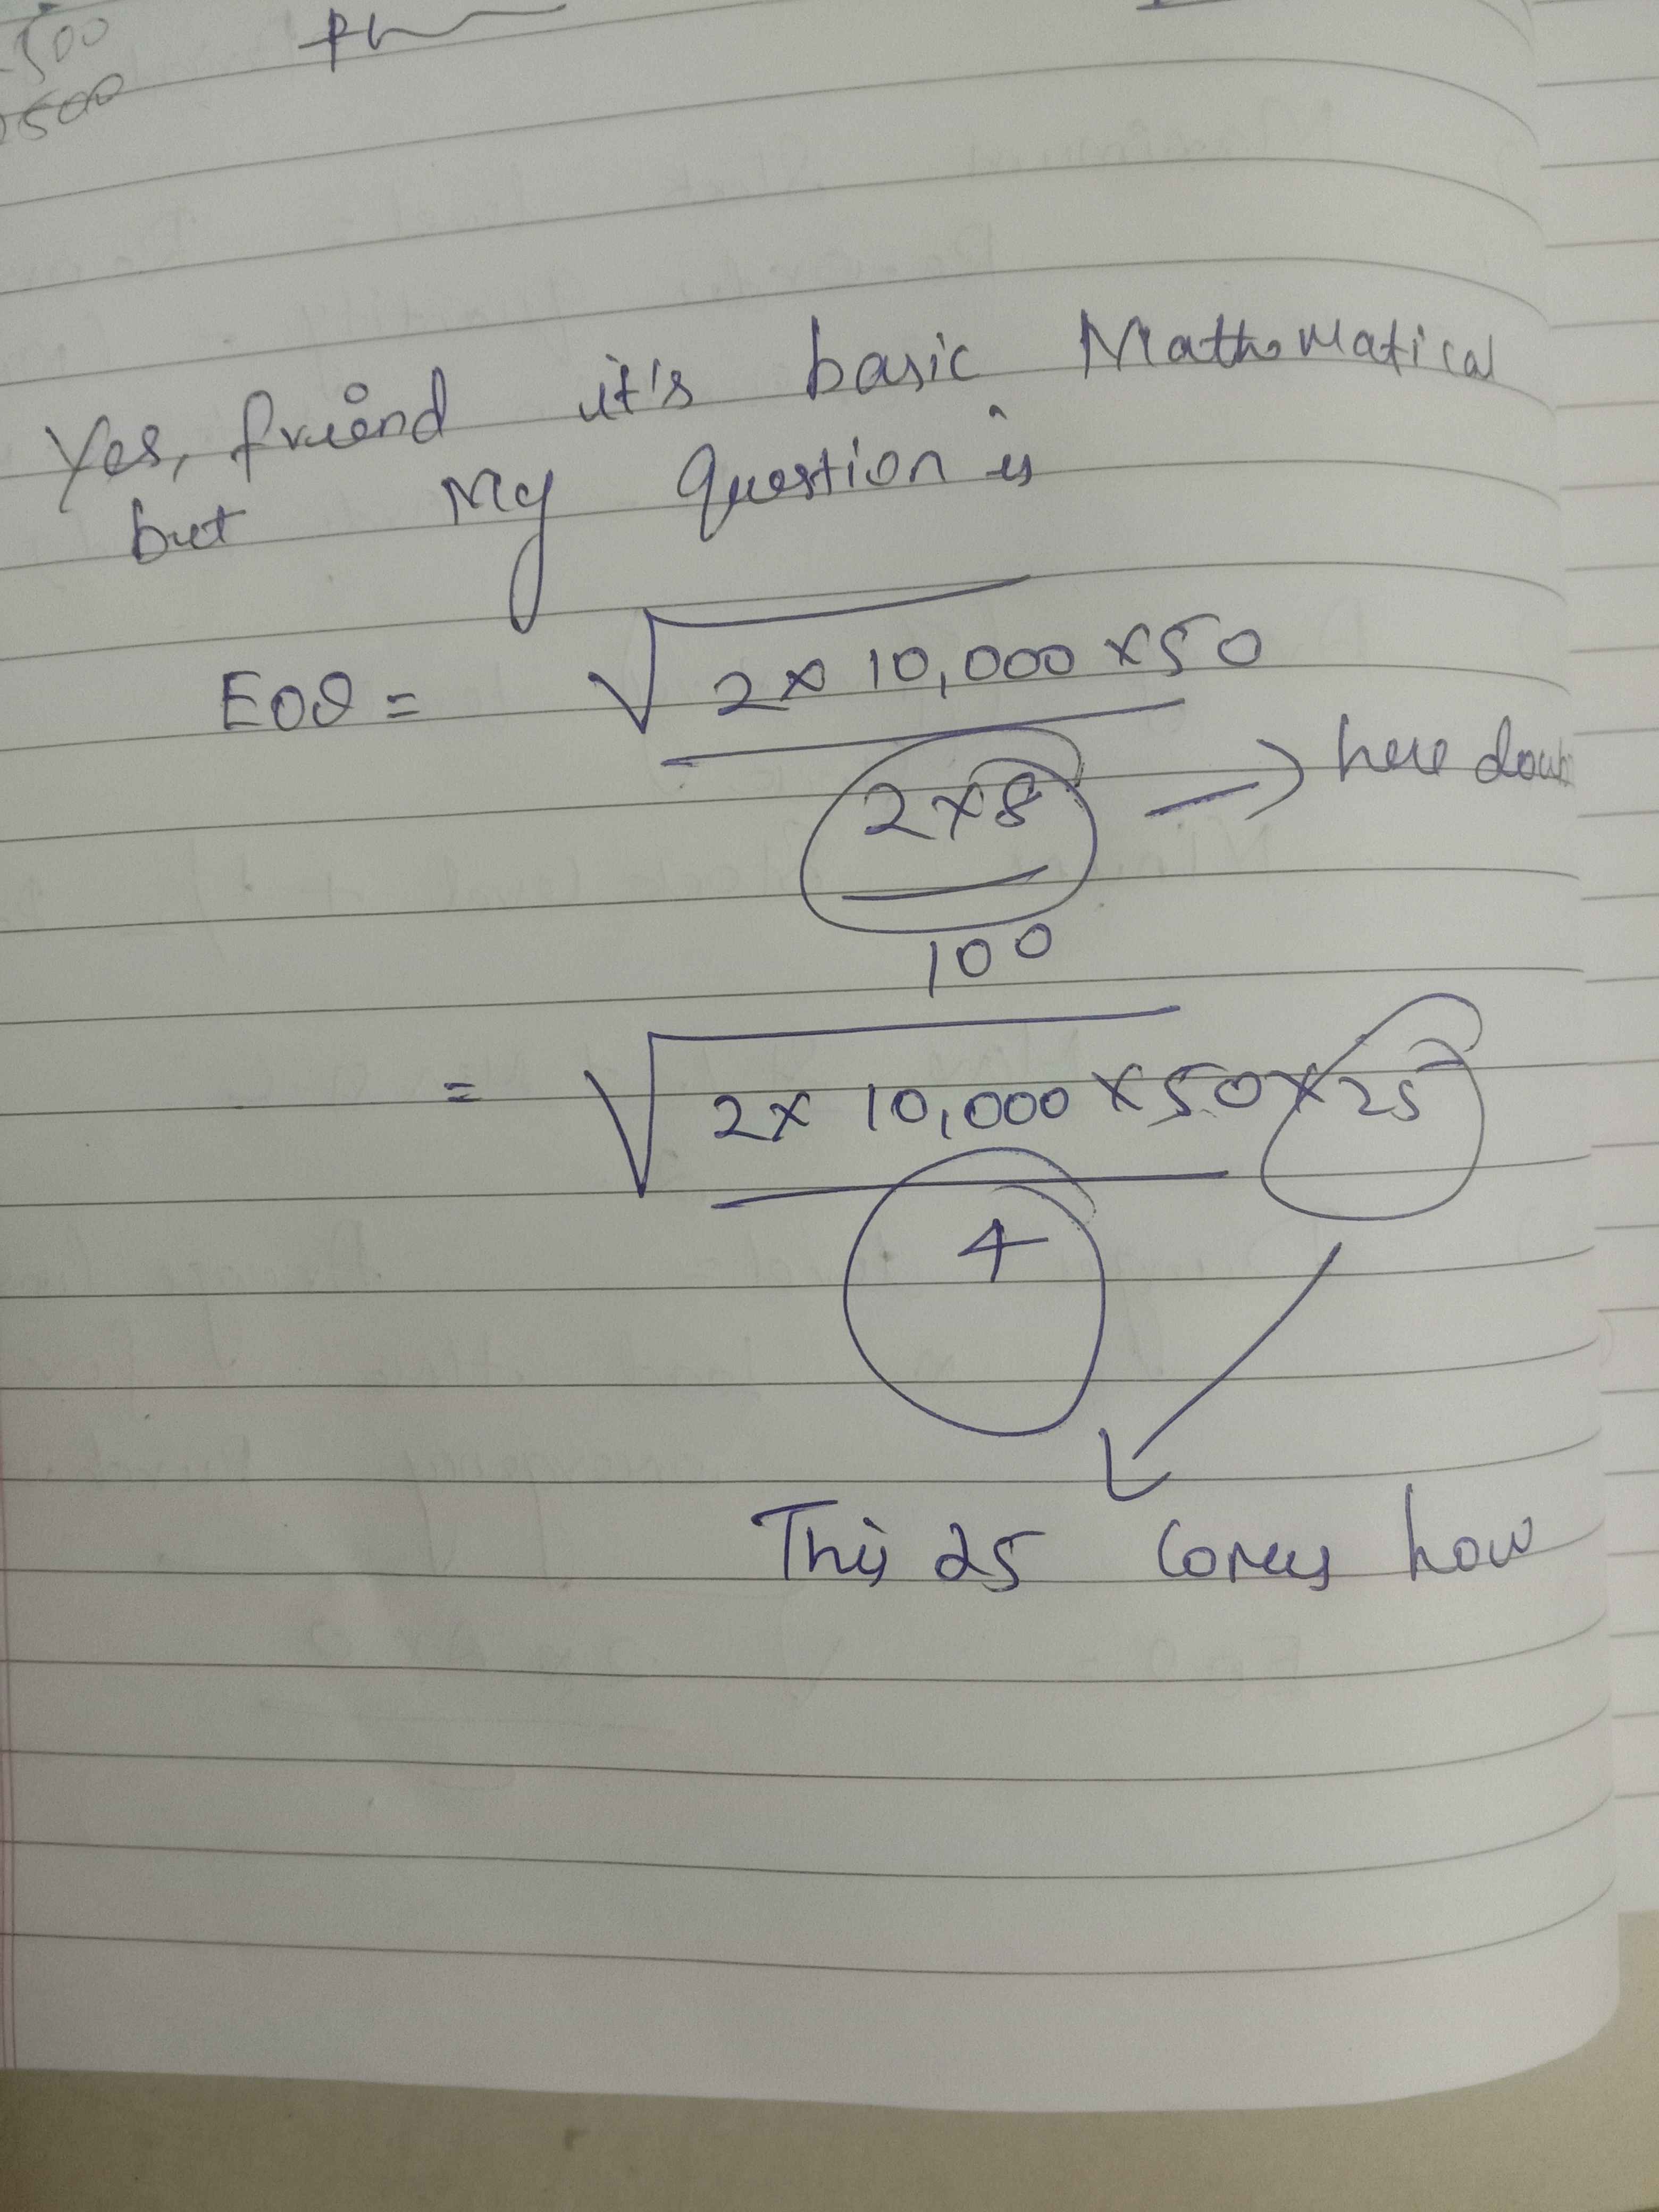 500
500
Yes, friend it's basic Mathematical
but My Question is
EOQ = √2×10,000×50
2×8 → here doub
100
= √2×10,000×50×25
4
This 25 comes how